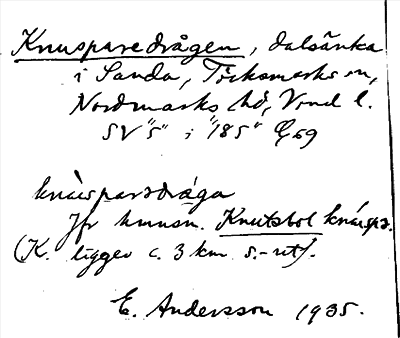 Knusparedrågen, dalsänka
i Sanda, Töcksmarks sn,
Nordmarks hd, Vrml l.
SV "5" i "185" Q69
knùsparədråga
Jfr hmnsn. Knutsbol knúspə.
(K. ligger c. 3 km s.-ut).
E. Andersson 1935.